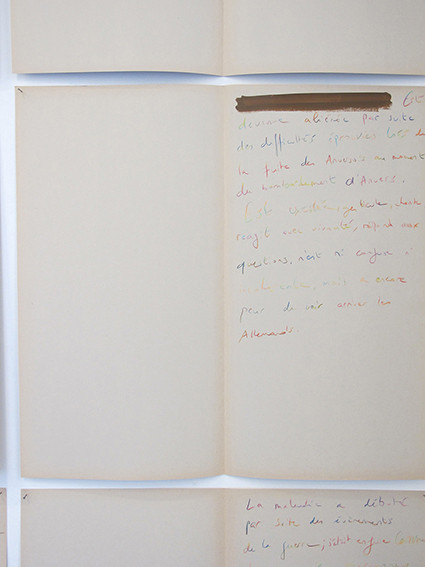 Est
devenue aliénée par suite
des difficultés éprouvées lors de
la fuite des Anversois au moment
du bombardement d'Anvers.
Est
réagit avec vivacité, répond aux
questions, n'est ni confuse ni
mais a encore
peur de voir arriver les
Allemands.
La maladie a débuté
par suite des événements
de la guerre; était